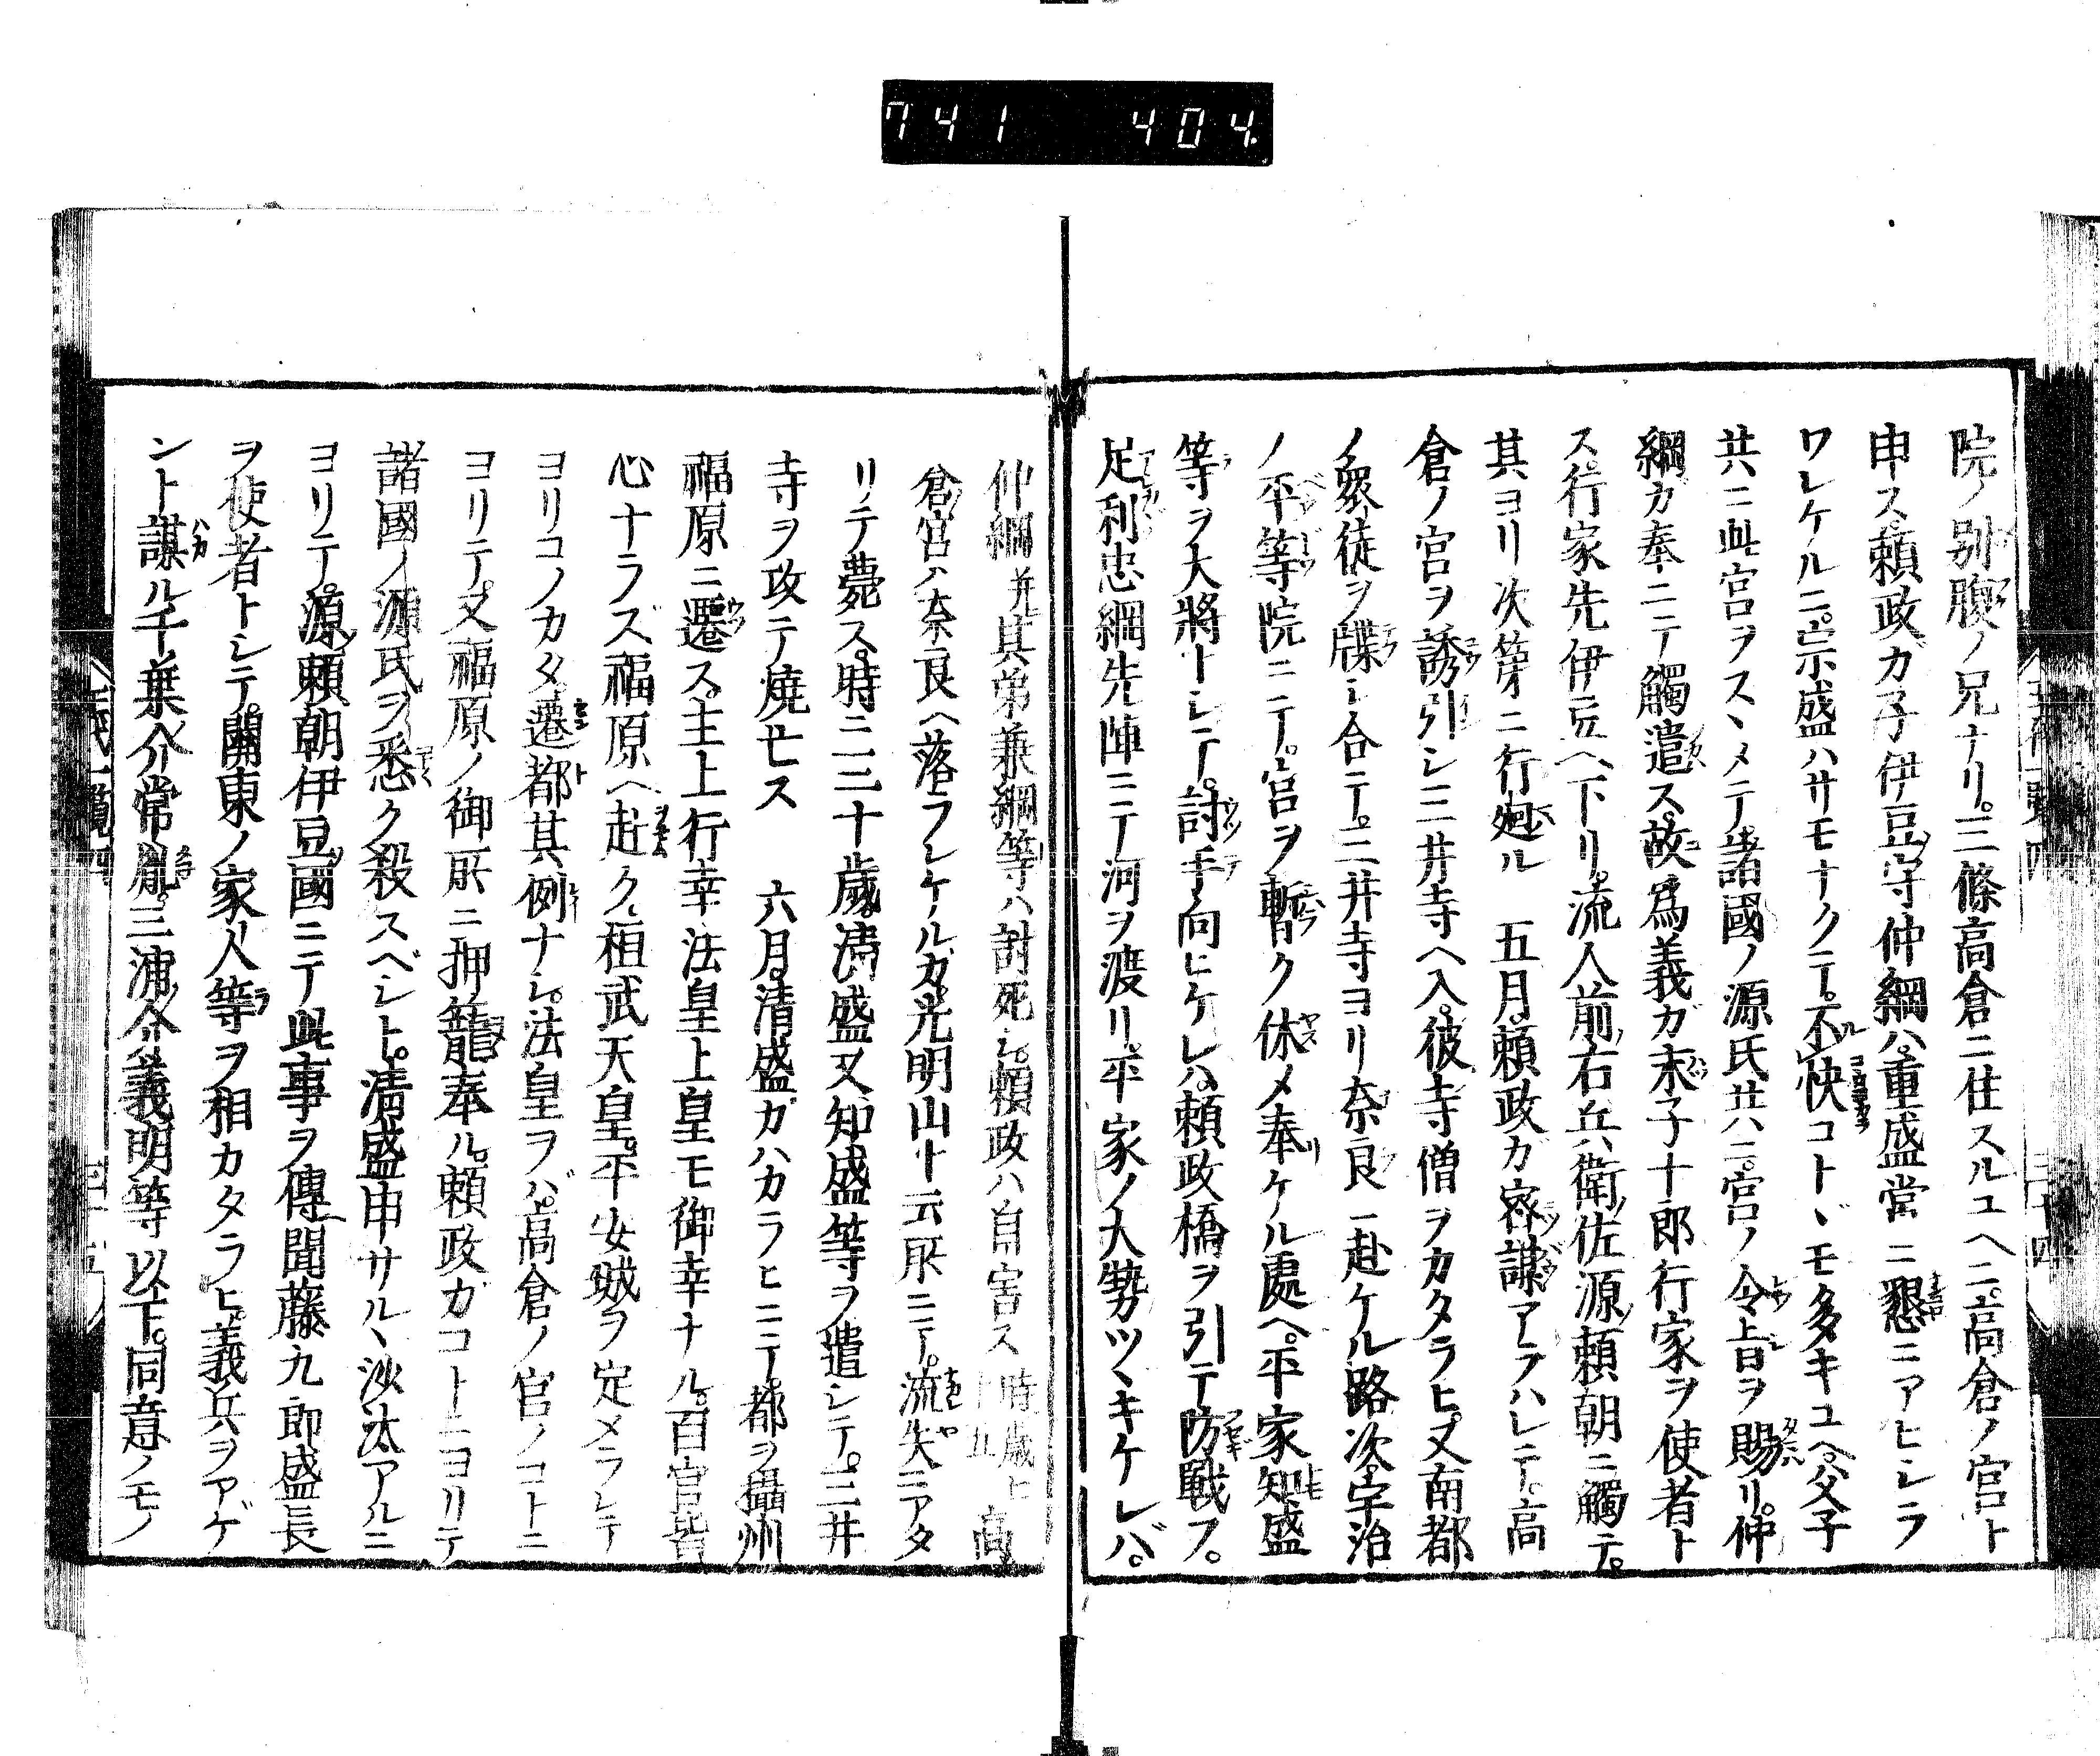 741 404
院ノ別腹ノ兄ナリ。三條高倉ニ住スルユヘニ。高倉ノ宮ト
申ス。頼政ガ子伊豆守仲綱ハ。重盛常ニ懇ニアヒシラ
ワレケルニ。宗盛ハサモナクテ。不快コトヾモ多キユヘ。父子
共ニ此宮ヲスヽメテ。諸國ノ源氏共ニ。宮ノ令旨ヲ賜リ。仲
綱カ奉ニテ觸遣ス。故爲義ガ末子十郎行家ヲ使者ト
ス。行家先伊豆ヘ下リ。流人前右兵衛佐源頼朝ニ觸テ。
其ヨリ次第ニ行廻ル 五月。頼政ガ密謀アラハレテ。高
倉ノ宮ヲ誘引シ三井寺ヘ入。彼寺僧ヲカタラヒ。又南都
ノ衆徒ヲ牒シ合テ。三井寺ヨリ奈良ニ赴ケル路次宇治
ノ平等院ニテ。宮ヲ暫ク休メ奉ケル處ヘ。平家知盛
等ヲ大將トシテ。討手向ヒケレハ。頼政橋ヲ引テ防戰フ。
足利忠綱先陣ニテ河ヲ渡リ。平家ノ大勢ツヽキケレバ。
仲綱并其弟兼綱等ハ討死シ。頼政ハ自害ス時歳七十五高
倉宮ハ奈良ヘ落フレケルガ。光明山ト云所ニテ。流矢ニアタ
リテ薨ス。時ニ三十歳。清盛又知盛等ヲ遣シテ。三井
寺ヲ攻テ燒亡ス 六月。清盛カハカラヒニテ。都ヲ攝州
福原ニ遷ス。主上行幸法皇上皇モ御幸ナル。百官皆
心ナラズ福原ヘ赴ク。桓武天皇。平安城ヲ定メラレテ
ヨリコノカタ。遷都其例ナシ。法皇ヲバ。高倉ノ宮ノコトニ
ヨリテ。又福原ノ御所ニ押籠奉ル。頼政カコトニヨリテ
諸國ノ源氏ヲ悉ク殺スベシト。清盛申サルヽ沙汰アルニ
ヨリテ。源頼朝伊豆國ニテ此事ヲ傳聞藤九郎盛長
ヲ使者トシテ。關東ノ家人等ヲ相カタラヒ。義兵ヲアゲ
ント謀ル千葉介常胤。三浦介義明等以下。同意ノモノ